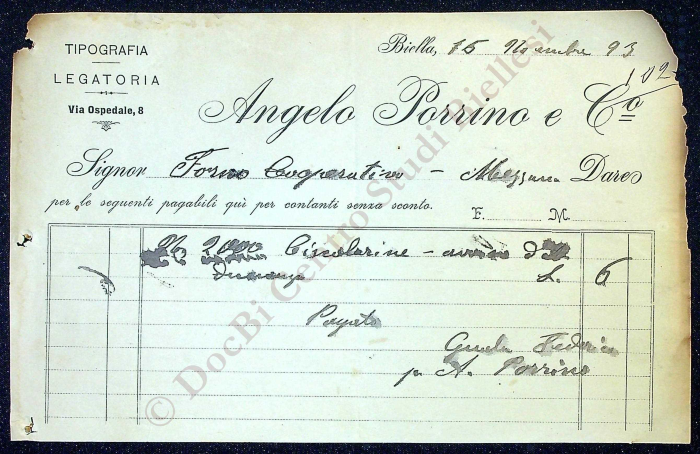 TIPOGRAFIA
LEGATORIA
Via Ospedale, 8
Biella, 15 Novembre 93
102
Angelo Porrino e Cº
Signor Forno Cooperativo - Mezzana Dare
per le seguenti pagabili quì per contanti senza sconto. F. M.
Nº 2000 Circolarine - avviso di
L. 6
Pagato
Federico
p A. Porrino
© DocBi Centro Studi Biellesi